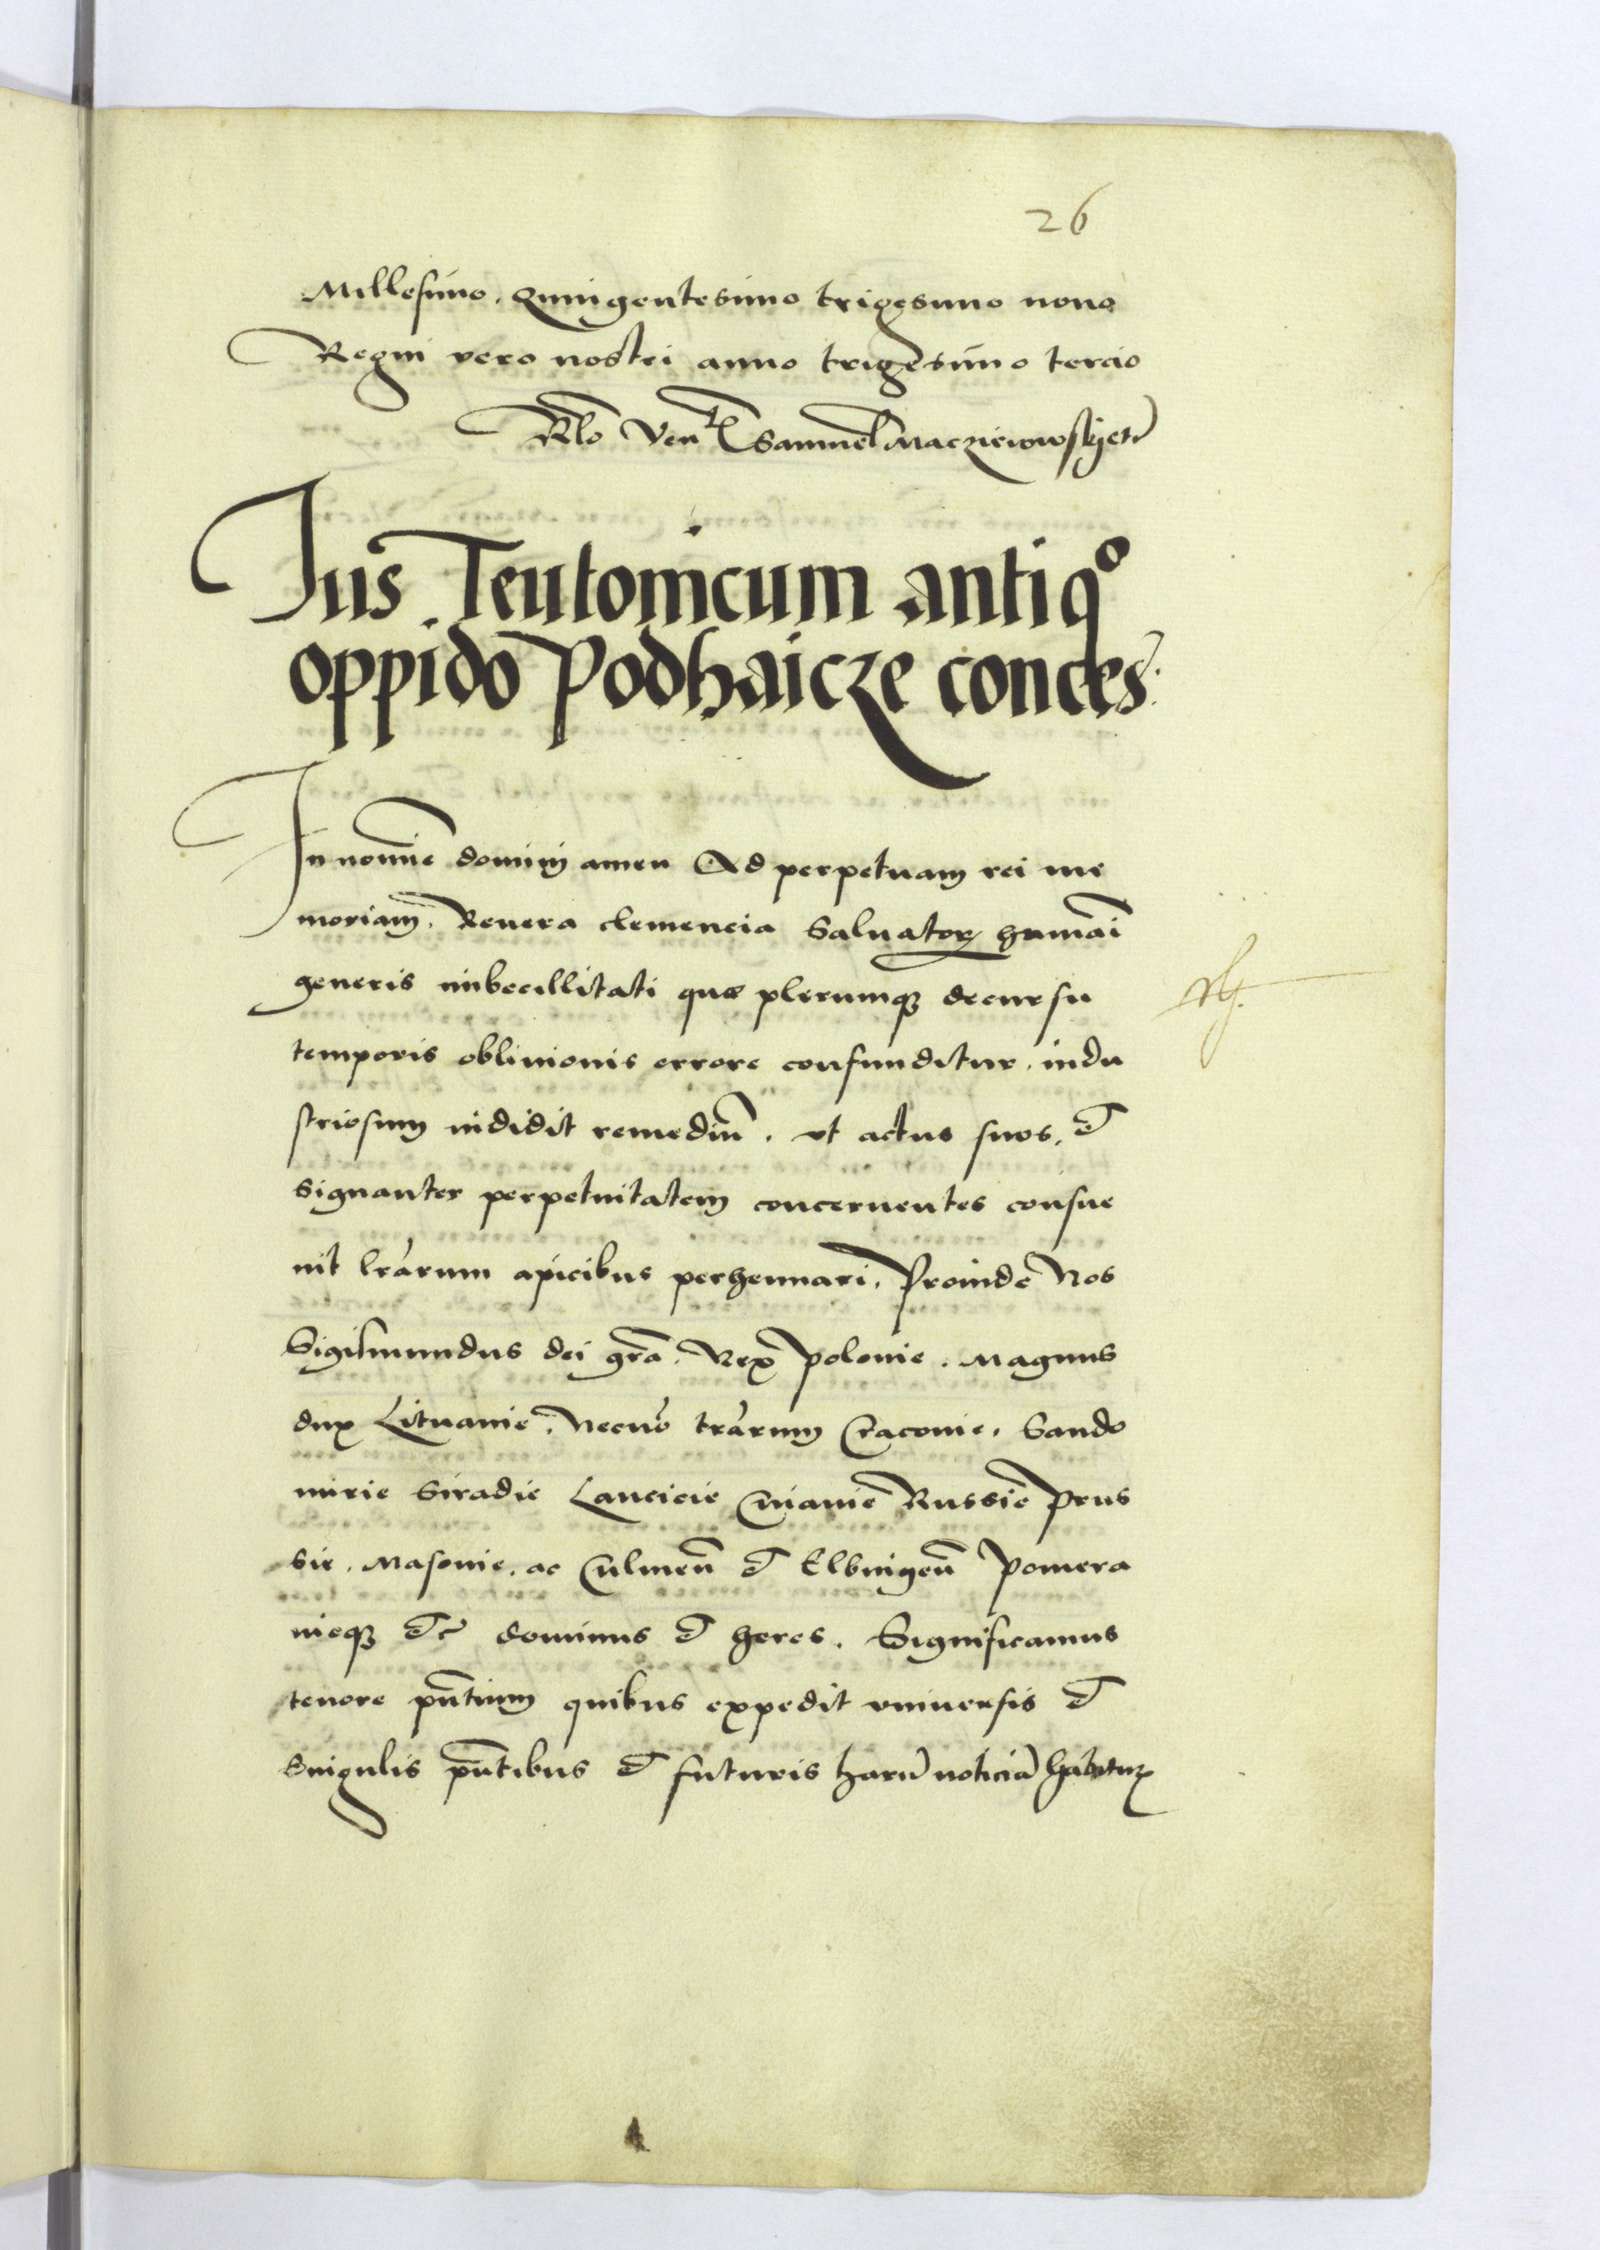 26
Millesimo. Quingentesimo trigesimo nono
Regni vero nostri anno trigesimo tercio
Rlo Ven Samuel Macziewowskj etc
Jus Teutonicum antiqo
oppido Podhaicze conces.
In nomine domini amen Ad perpetuam rei me
moriam. Revera clemencia Salvator humai
generis imbecillitati que plerumqз decursu
temporis oblivionis errore confunditur. indu
striosum indidit remediu. vt actus suos. et
signanter perpetuitatem concernentes consue
uit lrarum apicibus perhennari. Proinde Nos
Sigismundus dei gra. Rex Polonie. Magnus
dux Lituanie. Necno trarum Cracovie. Sando
mirie Siradie Lancicie Cuiavie Russie Prus
sie. Masovie. ac Culmen et Elbingen Pomera
nieqз etc dominus et heres. Significamus
tenore pntium quibus expedit vniuersis et
singulis pntibus et futuris haru noticia habitur